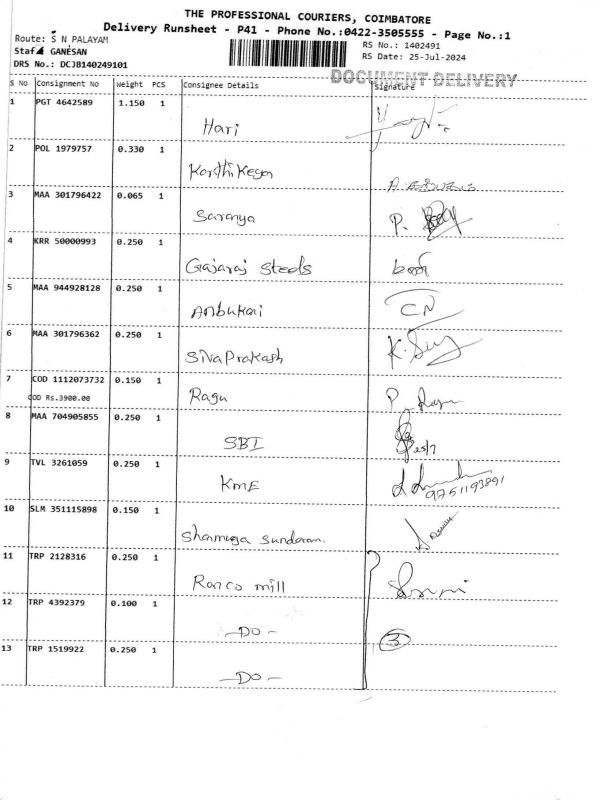 THE PROFESSIONAL COURIERS, COIMBATORE
Delivery Runsheet - P41 - Phone No.:0422-3505555 - Page No.:1
Route: S N PALAYAM RS No.: 1402491
Staf GANESAN RS Date: 25-Jul-2024
DRS No.: DCJB140249101
DOCUMENT DELIVERY
S No Consignment No Weight PCS Consignee Details Signature
1 PGT 4642589 1.150 1
Hari
2 POL 1979757 0.330 1
Karthikeyan
3 MAA 301796422 0.065 1
Saranya P.
4 KRR 50000993 0.250 1
Gajaraj Steels
5 MAA 944928128 0.250 1
Anbukani CN
6 MAA 301796362 0.250 1
SivaPrakash K.
7 COD 1112073732 0.150 1
COD Rs.3900.00 Ragu P.
8 MAA 704905855 0.250 1
SBI 25/7
9 TVL 3261059 0.250 1
KME 9751193891
10 SLM 351115898 0.150 1
Shamuga Sundaram.
11 TRP 2128316 0.250 1
Ranco mill
12 TRP 4392379 0.100 1
-DO- 3
13 TRP 1519922 0.250 1
-DO-